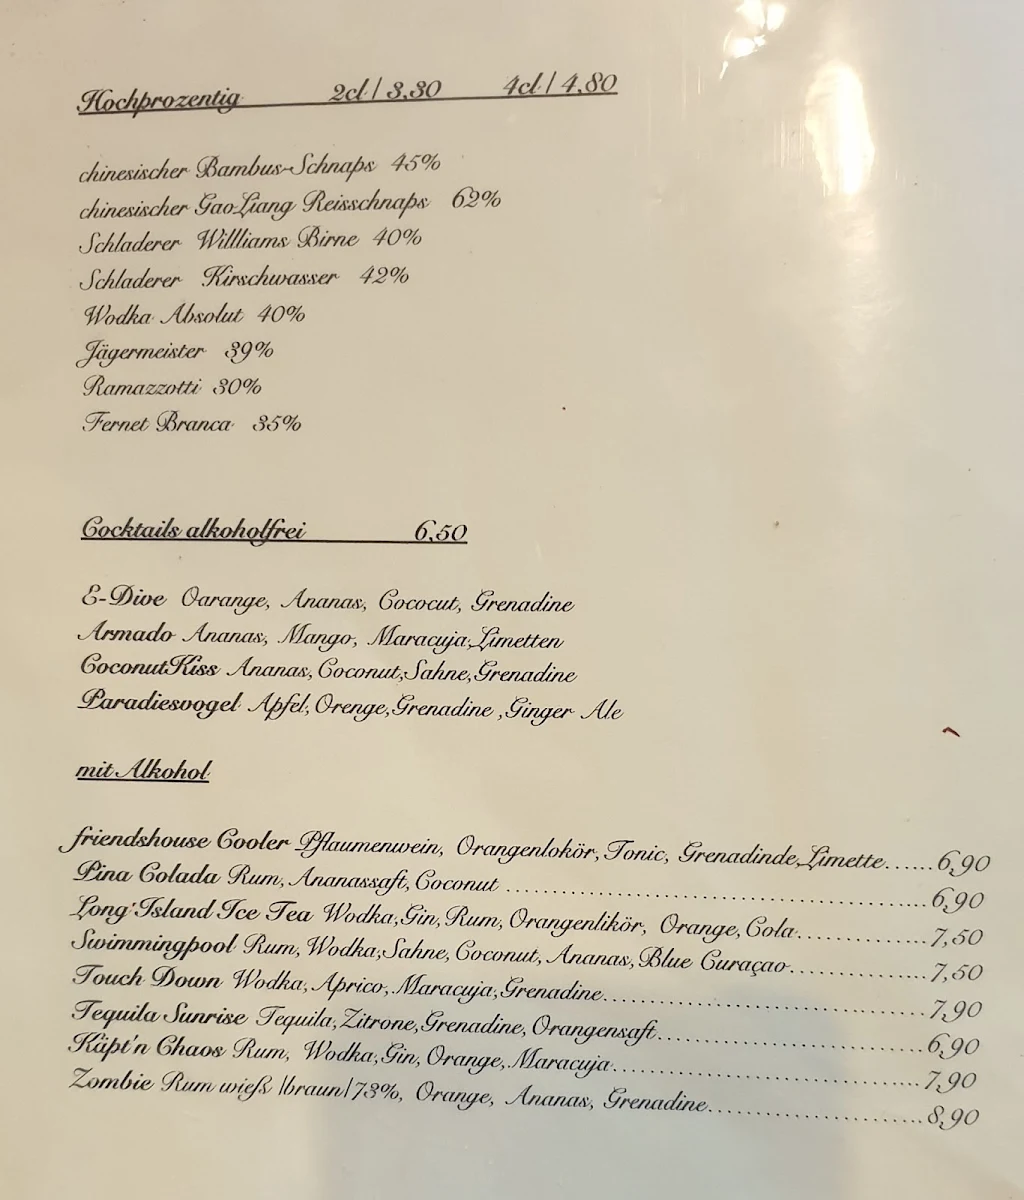 Hochprozentig 2cl / 3,30 4cl / 4,80
chinesischer Bambus-Schnaps 45%
chinesischer GaoLiang Reisschnaps 62%
Schladerer Willliams Birne 40%
Schladerer Kirschwasser 42%
Wodka Absolut 40%
Jägermeister 39%
Ramazzotti 30%
Fernet Branca 35%
Cocktails alkoholfrei 6,50
E-Dive Oarange, Ananas, Cococut, Grenadine
Armado Ananas, Mango, Maracuja,Limetten
CoconutKiss Ananas, Coconut,Sahne,Grenadine
Paradiesvogel Apfel, Orenge,Grenadine ,Ginger Ale
mit Alkohol
friendshouse Cooler Pflaumenwein, Orangenlokör, Tonic, Grenadinde,Limette......6,90
Pina Colada Rum, Ananassaft, Coconut ..........6,90
Long'Island Ice Tea Wodka,Gin, Rum, Orangenlikör, Orange, Cola..........7,50
Swimmingpool Rum, Wodka,Sahne, Coconut, Ananas, Blue Curaçao..........7,50
Touch Down Wodka, Aprico, Maracuja,Grenadine..........7,90
Tequila Sunrise Tequila,Zitrone,Grenadine, Orangensaft..........6,90
Käpt'n Chaos Rum, Wodka,Gin, Orange, Maracuja..........7,90
Zombie Rum wieß |braun| 73%, Orange, Ananas, Grenadine..........8,90